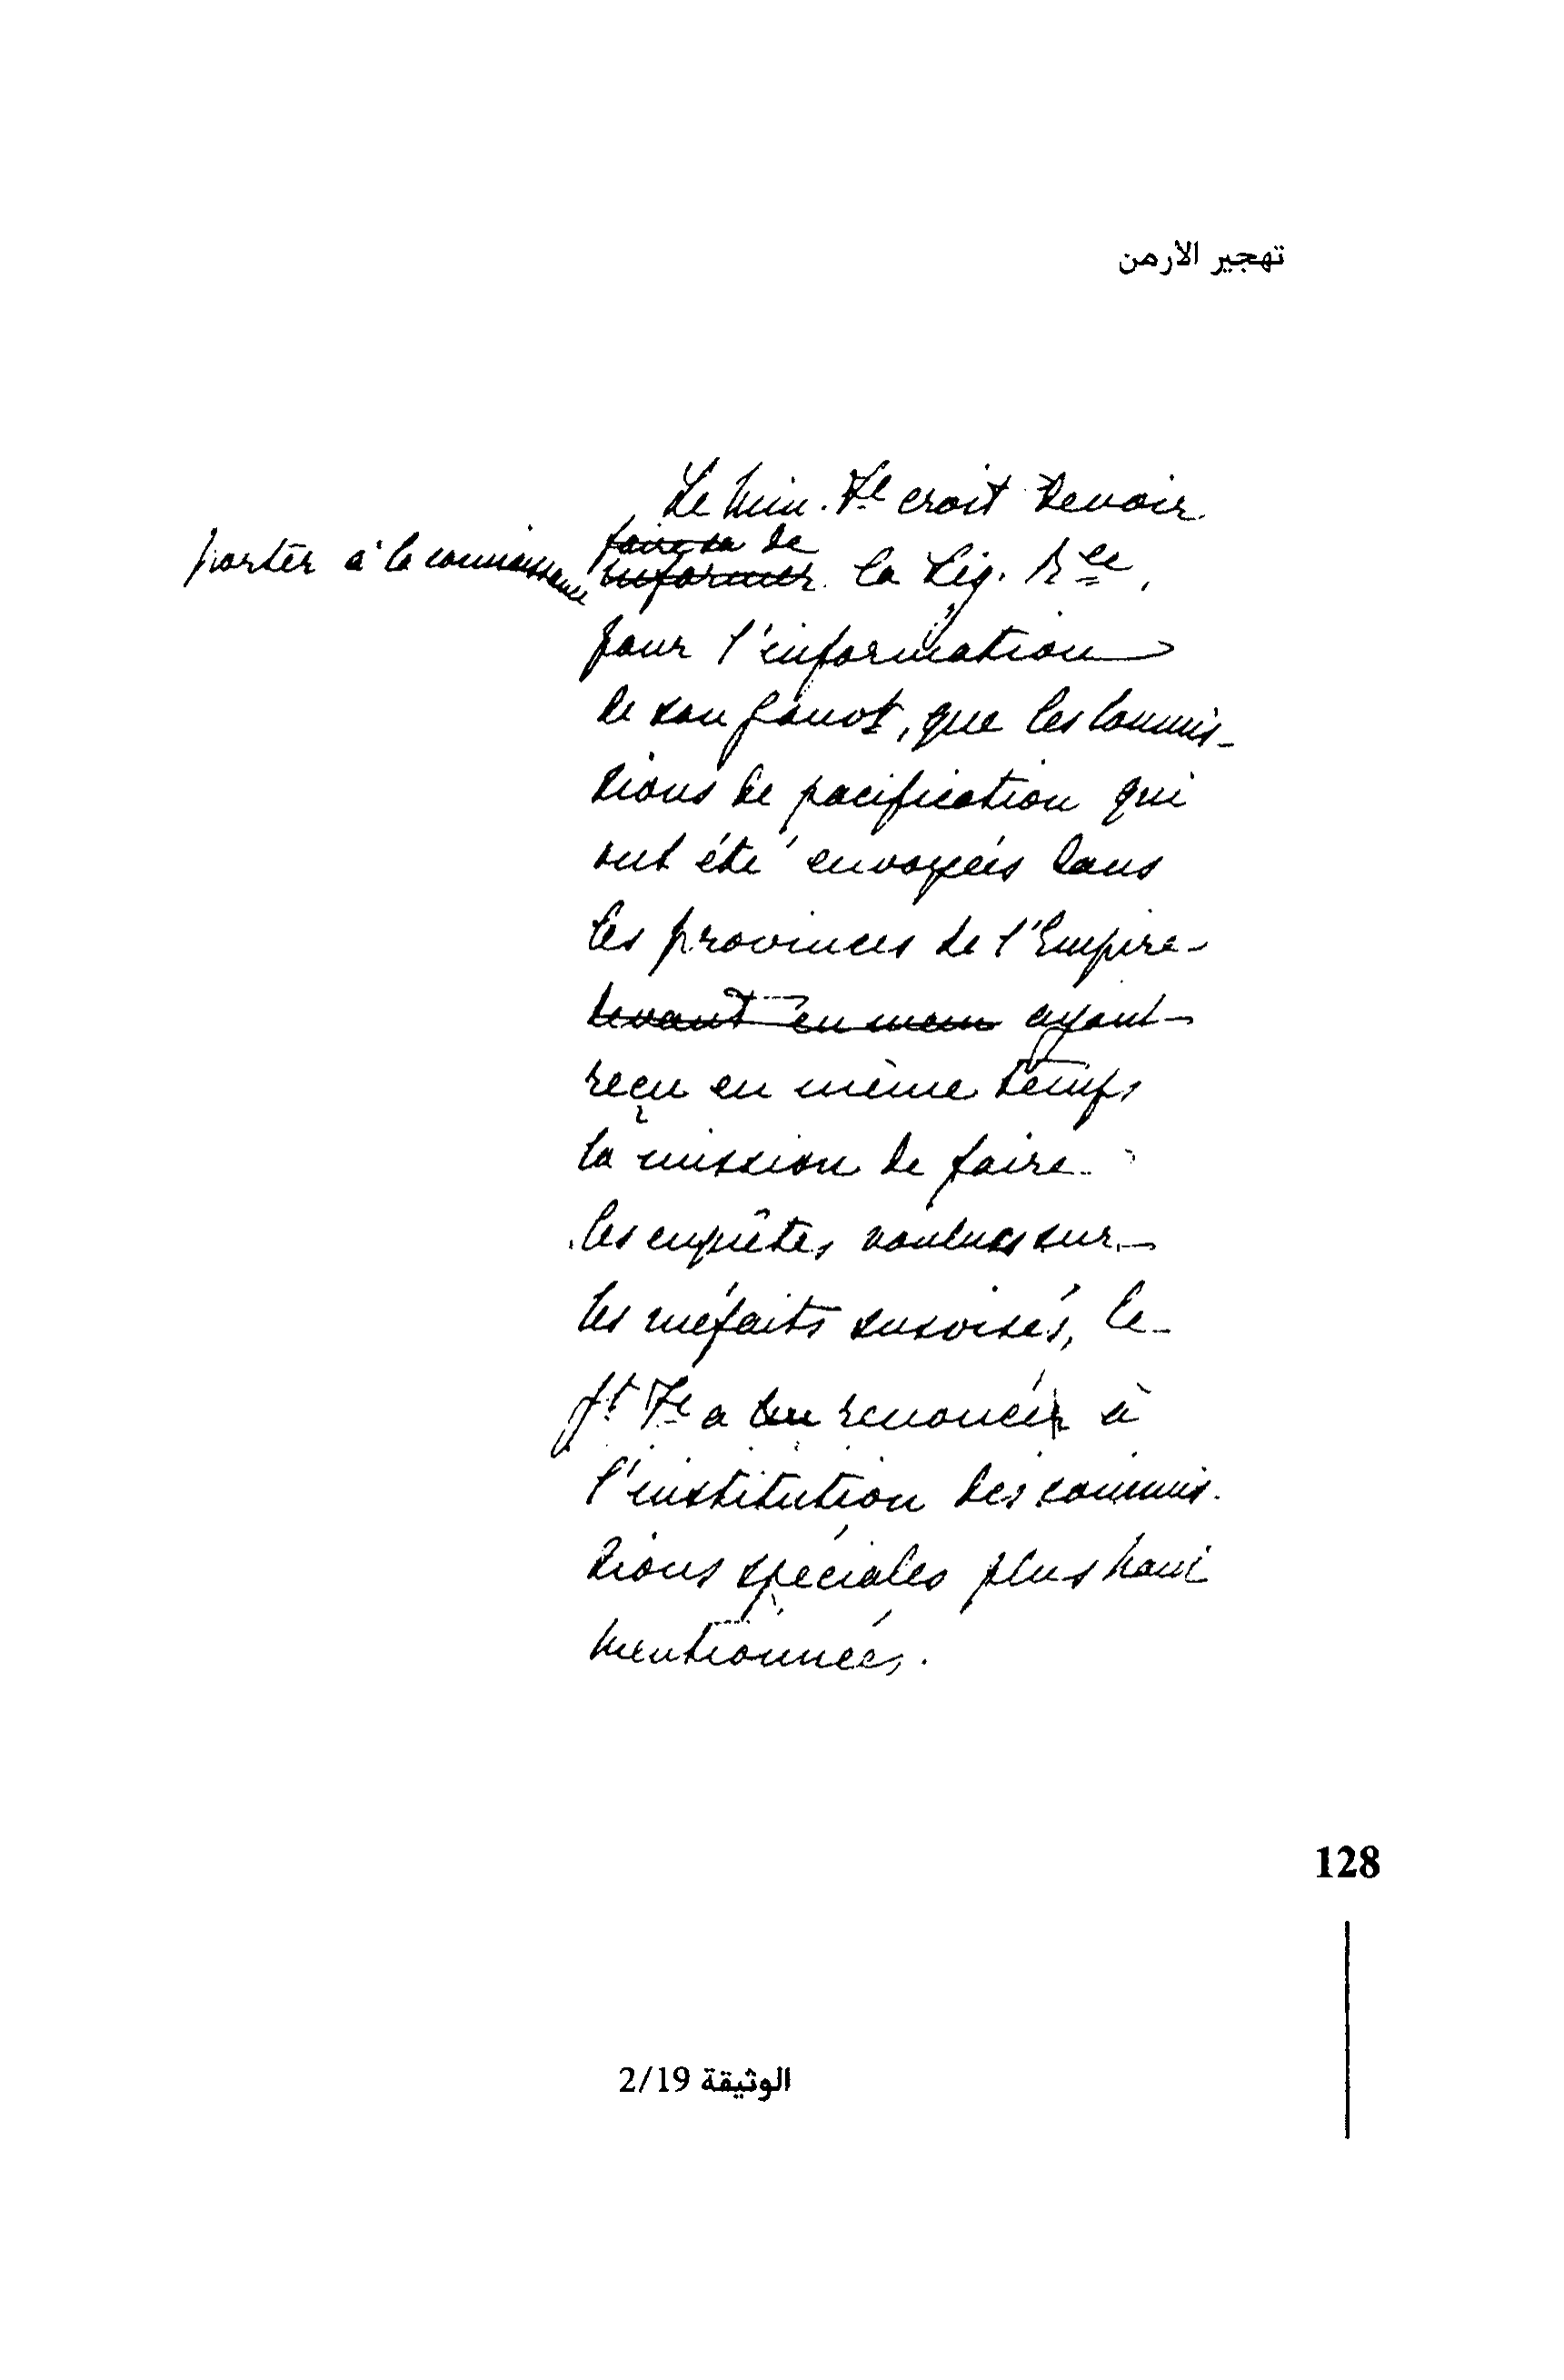 تهجير الارمن
Le Min. Il croit devoir
porter à la connaissance faire sa de
informer la Lég. Rle,
pour l'information
de son gouvt, que les commis-
sions de pacification qui
ont été envoyées dans
les provinces de l'Empire
devant en mem ayant
reçu en même temps
la mission de faire
les enquêtes voulues sur
les méfaits susvisés, le
gt Il a du renoncer à
l'institution des commis-
sions spéciales plus haut
mentionnées.
128
الوثيقة 2/19